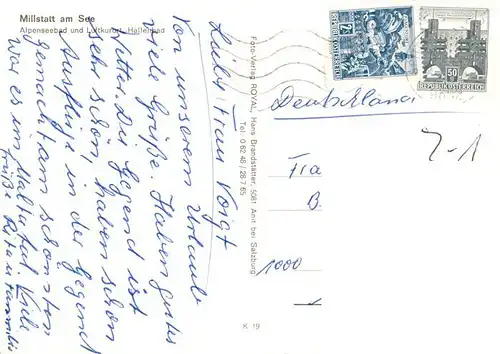 Millstatt am See
Alpenseebad und Luftkurort - Hallenbad
Liebe Frau Voigt
Von unserem Urlaub
viele Grüße. Haben gutes
Wetter. Die Gegend ist
sehr schön, haben schon
Ausflüge in der Gegend
gemacht, am schönsten
war es im Maltatal. Viele
Grüße Rita u. Familie
Foto-Verlag ROYAL, Hans Brandstätter, 5081 Anif bei Salzburg
Tel: 0 62 46 / 28 7 65
K 19
REPUBLIK ÖSTERREICH
50
Deutschland
J-1
Fra
B
1000